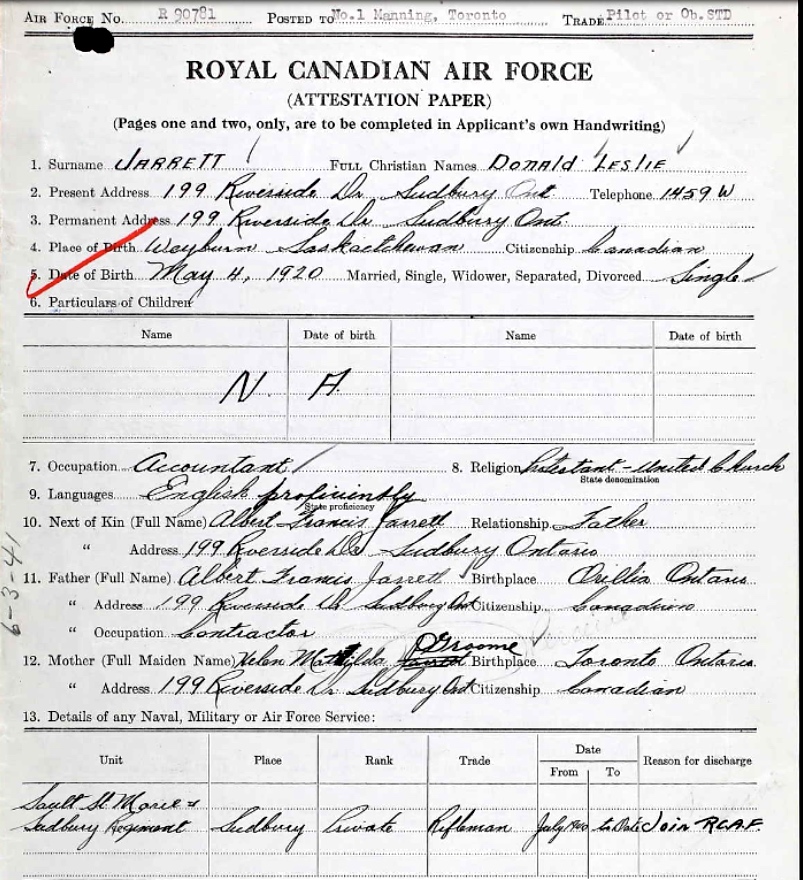 AIR FORCE NO. R 90781 POSTED TO No.1 Manning, Toronto TRADE Pilot or Ob. STD
ROYAL CANADIAN AIR FORCE
(ATTESTATION PAPER)
(Pages one and two, only, are to be completed in Applicant's own Handwriting)
1. Surname JARRETT FULL Christian Names DONALD LESLIE
2. Present Address 199 Riverside Dr Sudbury Ont Telephone 1459 W
3. Permanent Address 199 Riverside Dr Sudbury Ont.
4. Place of Birth Weyburn Saskatchewan Citizenship Canadian
5. Date of Birth May 4, 1920 Married, Single, Widower, Separated, Divorced Single
6. Particulars of Children
Name Date of birth Name Date of birth
N. A.
7. Occupation Accountant 8. Religion Protestant - United Church
State denomination
9. Languages English proficiently
State proficiency
10. Next of Kin (Full Name) Albert Francis Jarrett Relationship Father
" Address 199 Riverside Dr Sudbury Ontario
11. Father (Full Name) Albert Francis Jarrett Birthplace Orillia Ontario
" Address 199 Riverside Dr Sudbury Ont Citizenship Canadian
" Occupation Contractor
Groome
12. Mother (Full Maiden Name) Helen Matilda Jarrett Birthplace Toronto Ontario
" Address 199 Riverside Dr Sudbury Ont Citizenship Canadian
13. Details of any Naval, Military or Air Force Service:
Unit Place Rank Trade Date Reason for discharge
From To
Sault St Marie &
Sudbury Regiment Sudbury Private Rifleman July to Date Join RCAF.
6-3-41